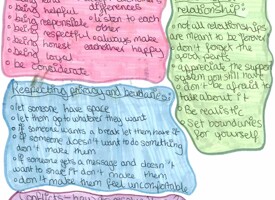 being helpful
differences
being responsible
listen to each
other
being respectful
always make
being honest
eachother happy
being loyal
be considerate
relationship:
not all relationships
are meant to be forever
don't forget the
good parts
appreciate the support
system you still have
don't be afraid to
talk about it
Be realistic
Set boundaries
for yourself
Respecting privacy and boundaries:
let someone have space
let them go to whatever they want
if someone wants a break let them have it
if someone doesn't want to do something
don't make them
if someone gets a message and doesn't
want to share it don't make them
don't make them feel uncomfortable